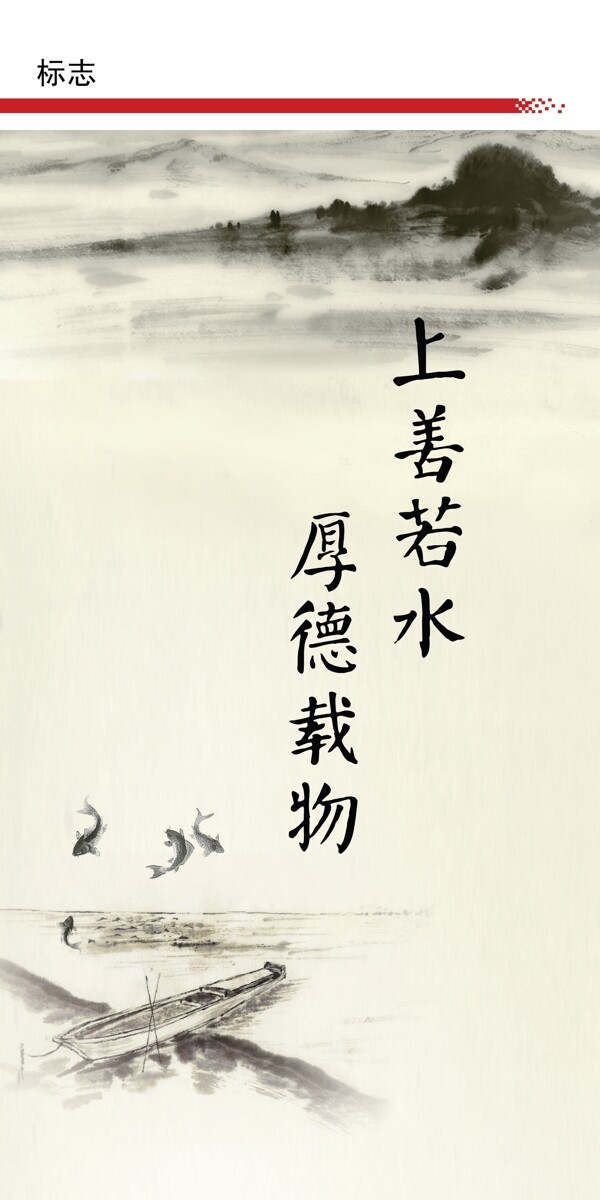 标志
上善若水
厚德载物